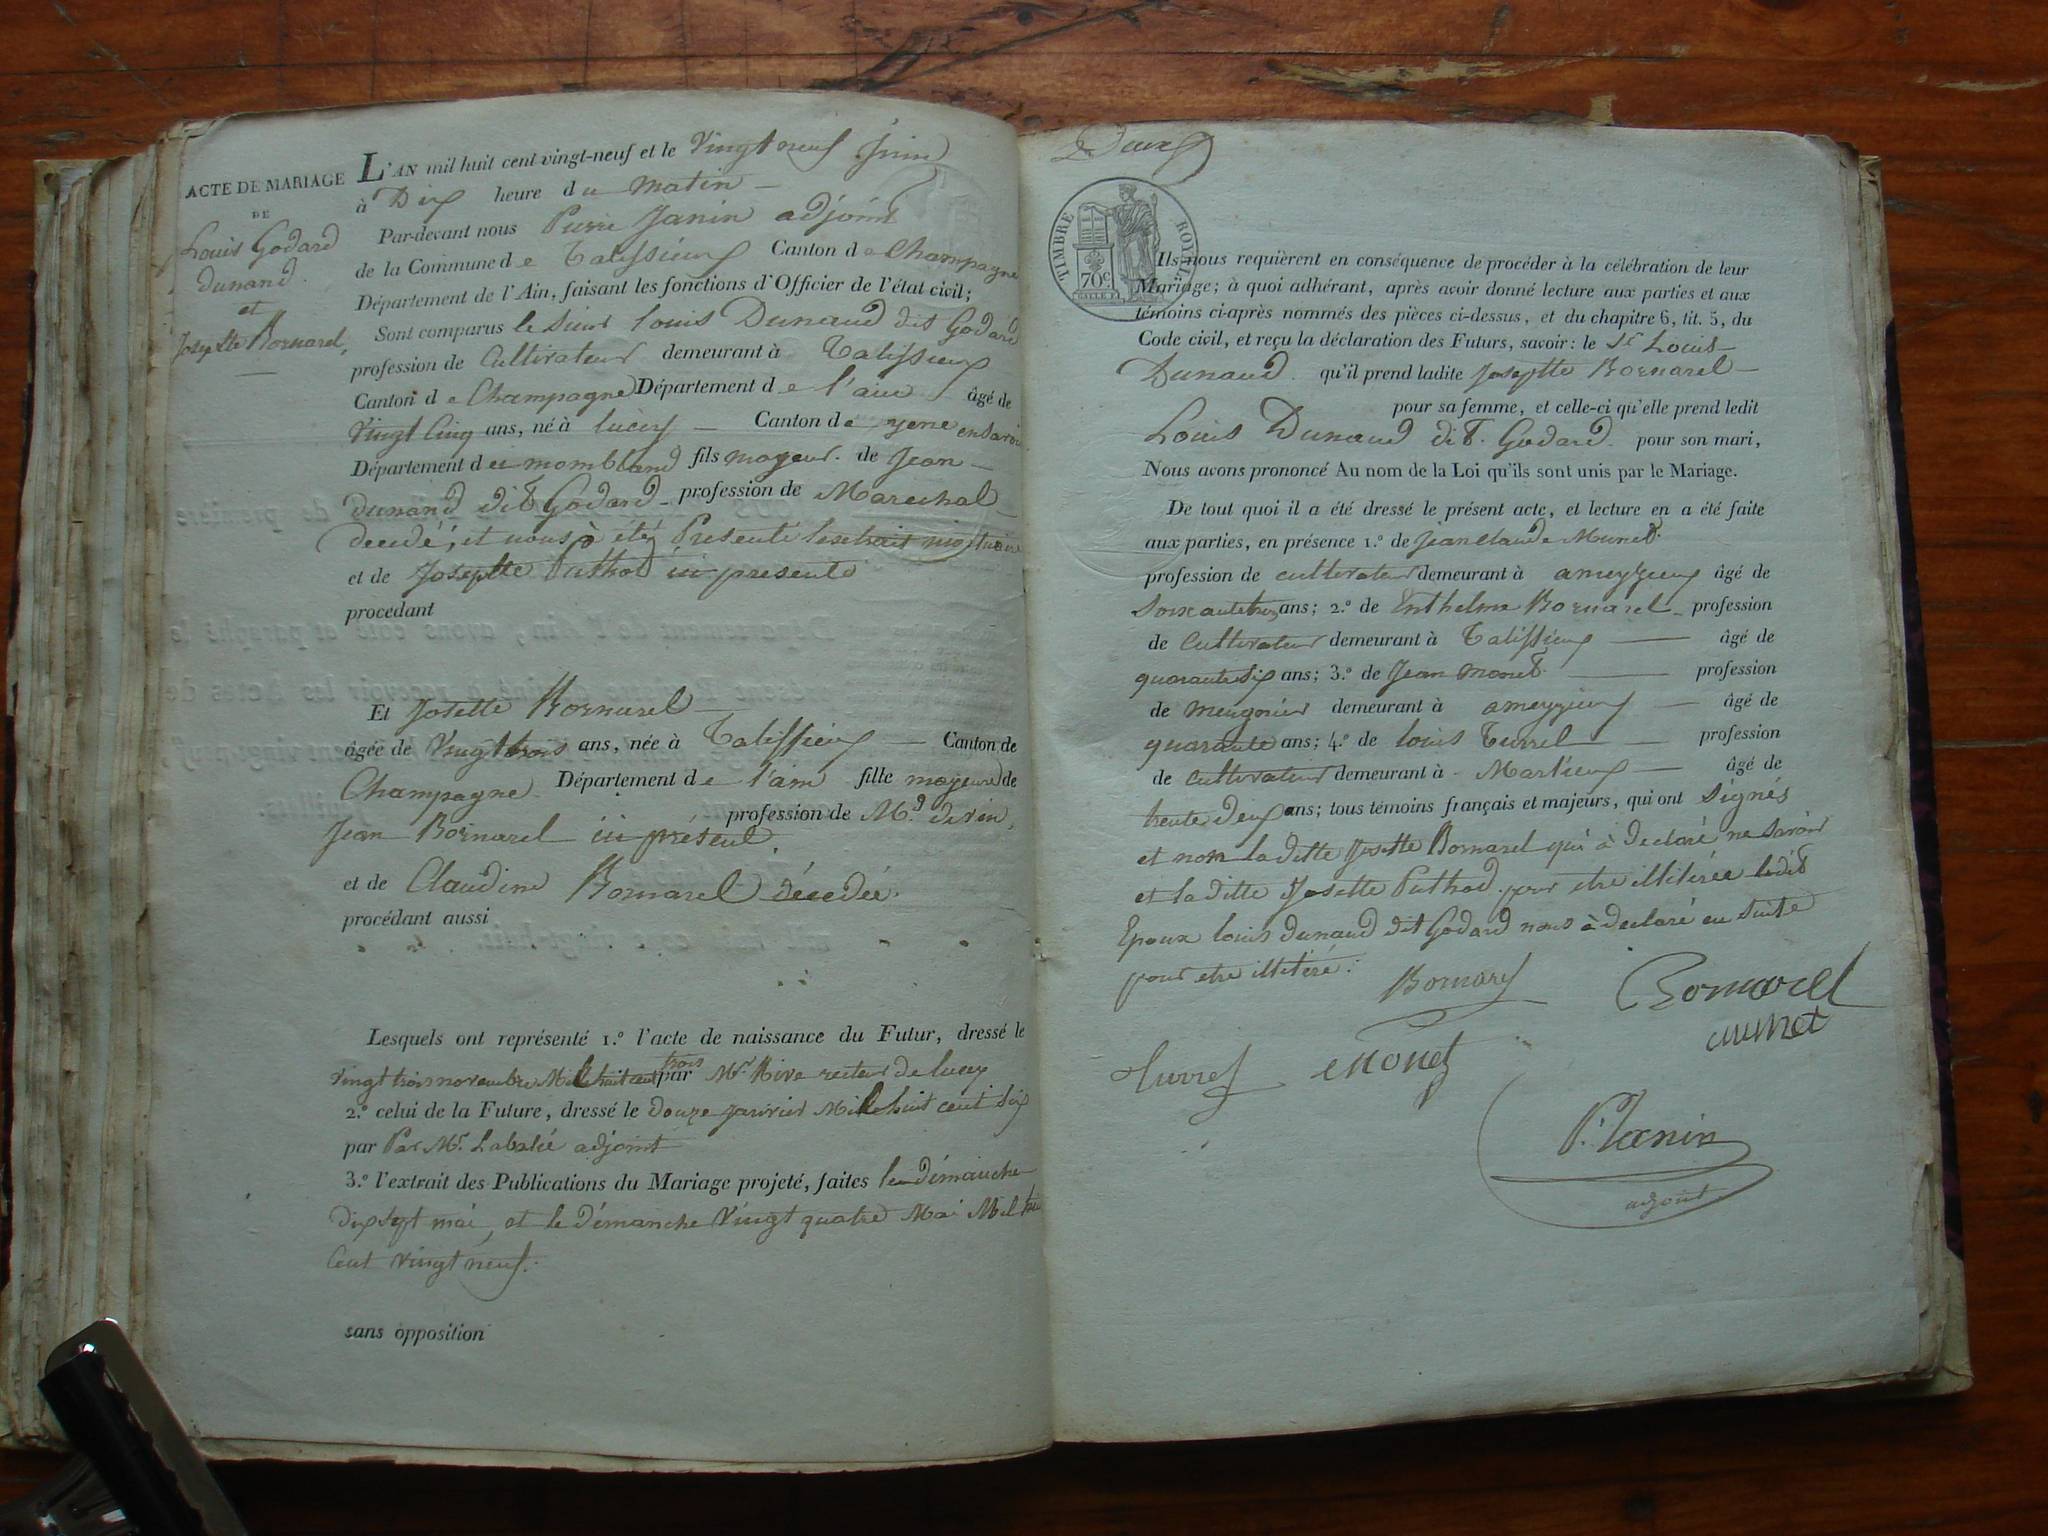 ACTE DE MARIAGE
DE
Louis Godard
dunand
et
Josephte Bornarel,
L'AN mil huit cent vingt-neuf et le Vingt neuf Juin
à Dix heure du matin
Par-devant nous Pierre Janin adjoint
de la Commune de Talissieux Canton de Champagne
Département de l'Ain, faisant les fonctions d'Officier de l'état civil;
Sont comparus le Sieur Louis Dunand dit Godard
profession de Cultivateur demeurant à Talissieux
Canton de Champagne Département de l'ain âgé de
Vingt Cinq ans, né à lucey Canton de yene en Savoie
Département du montbland fils mageur de Jean
dunand dit Godard profession de Marechal
decedé, et nous à été Presenté lextrait mortuaire
et de Josephte Puthod ici presente
procédant
Et Josette Bornarel
âgée de Vingt trois ans, née à Talissieux Canton de
Champagne Département de l'ain fille mageure de
Jean Bornarel ici présent profession de Md. de vin,
et de Claudine Bornarel décedée
procédant aussi
Lesquels ont représenté 1.º l'acte de naissance du Futur, dressé le
vingt trois novembre Mil huit cent trois par Mr. Rive recteur de lucey
2.º celui de la Future, dressé le douze janvier Mil huit cent Six
par Par Mr. Labalié adjoint
3.º l'extrait des Publications du Mariage projeté, faites le démanche
dix sept mai, et le démanche Vingt quatre Mai Mil huit
Cent vingt neuf.
sans opposition
Deux
TIMBRE ROYAL
70 c.
Ils nous requièrent en conséquence de procéder à la célébration de leur
Mariage; à quoi adhérant, après avoir donné lecture aux parties et aux
témoins ci-après nommés des pièces ci-dessus, et du chapitre 6, tit. 5, du
Code civil, et reçu la déclaration des Futurs, savoir: le Sr. Louis
Dunand qu'il prend ladite Josephte Bornarel
pour sa femme, et celle-ci qu'elle prend ledit
Louis Dunand dit Godard pour son mari,
Nous avons prononcé Au nom de la Loi qu'ils sont unis par le Mariage.
De tout quoi il a été dressé le présent acte, et lecture en a été faite
aux parties, en présence 1.º de Jean Claude Munet
profession de cultivateur demeurant à ameyzieux âgé de
Soixante trois ans; 2.º de Enthelme Bornarel profession
de Cultivateur demeurant à Talissieux âgé de
quarante six ans; 3.º de Jean Monet profession
de meugnier demeurant à ameyzieux âgé de
quarante ans; 4.º de Louis Turrel profession
de cultivateur demeurant à Marlieux âgé de
trente deux ans; tous témoins français et majeurs, qui ont Signés
et non la ditte Josette Bornarel qui à declaré ne Savoir
et la ditte Josette Puthod pour etre illitérée ledit
Epoux louis dunand dit Godard nous à declaré en suite
pour etre illitéré.
Bornarel
Bornarel
munet
Turrel
Monet
P. Janin
adjoint